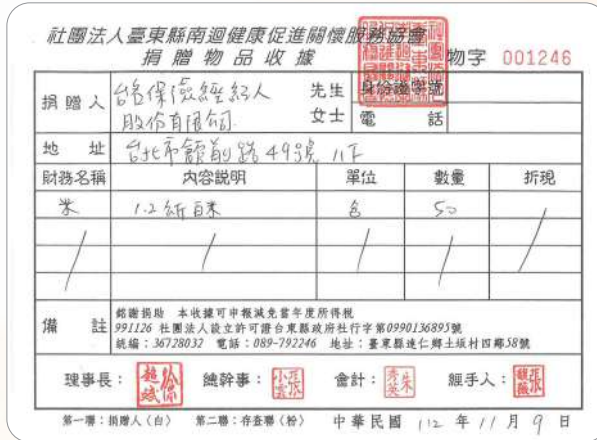 社團法人臺東縣南迴健康促進關懷服務協會
捐贈物品收據
物字 001246
捐贈人 台名保險經紀人 先生 身份證字號
股份有限公司 女士 電話
地址 台北市館前路49號11F
財務名稱 內容說明 單位 數量 折現
米 1.2 白米 包 50
備註
銘謝捐助 本收據可申報減免當年度所得稅
991126 社團法人設立許可證台東縣政府社行字第0990136895號
統編：36728032 電話：089-792246 地址：臺東縣達仁鄉土坂村四鄰58號
理事長： 徐超斌 總幹事： 張小雲 會計： 朱 經手人： 張
第一聯：捐贈人（白） 第二聯：存查聯（粉） 中華民國 112 年 11 月 9 日